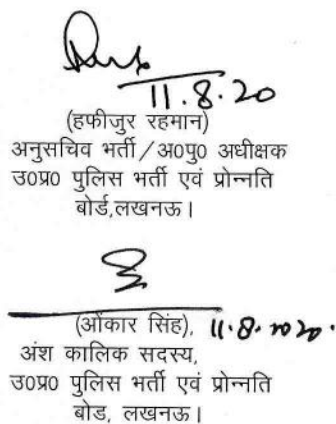 11.8.20
(हफीजुर रहमान)
अनुसचिव भर्ती/अ0पु0 अधीक्षक
उ0प्र0 पुलिस भर्ती एवं प्रोन्नति
बोर्ड,लखनऊ।
(ओंकार सिंह), 11.8.2020.
अंश कालिक सदस्य,
उ0प्र0 पुलिस भर्ती एवं प्रोन्नति
बोड, लखनऊ।